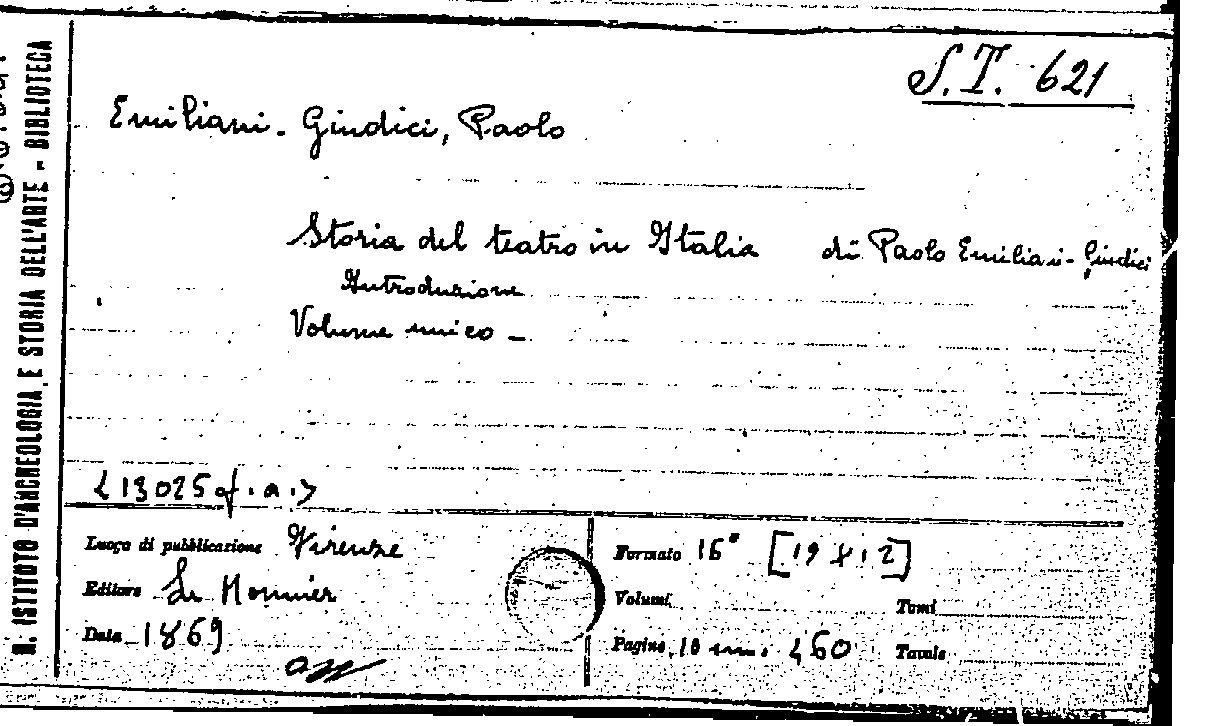 S.T. 621
Emiliani-Giudici, Paolo
Storia del teatro in Italia di Paolo Emiliani-Giudici
Introduzione
Volume unico -
<13025 f.a.>
Luogo di pubblicazione Firenze
Editore Le Monnier
Data 1869
Formato 16° [19 x 12]
Volumi
Tomi
Pagine 10 460
Tavole
R. ISTITUTO D'ARCHEOLOGIA E STORIA DELL'ARTE - BIBLIOTECA